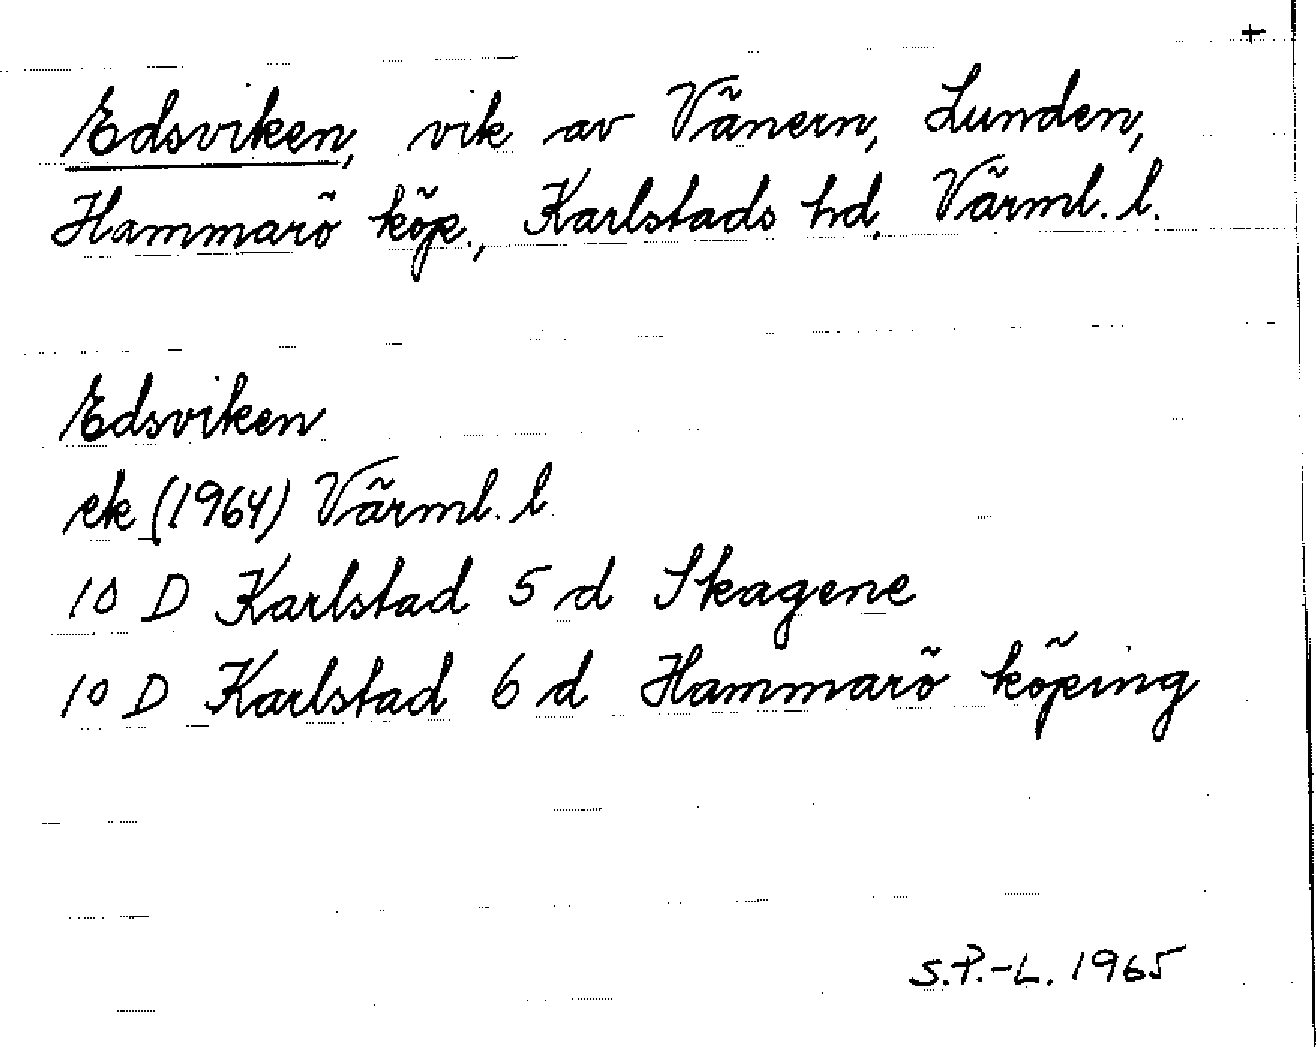 +
Edsviken, vik av Vänern, Lunden,
Hammarö köp., Karlstads hd, Värml. l.
Edsviken
ek (1964) Värml. l.
10 D Karlstad 5 d Skagene
10 D Karlstad 6 d Hammarö köping
S.P.-L. 1965